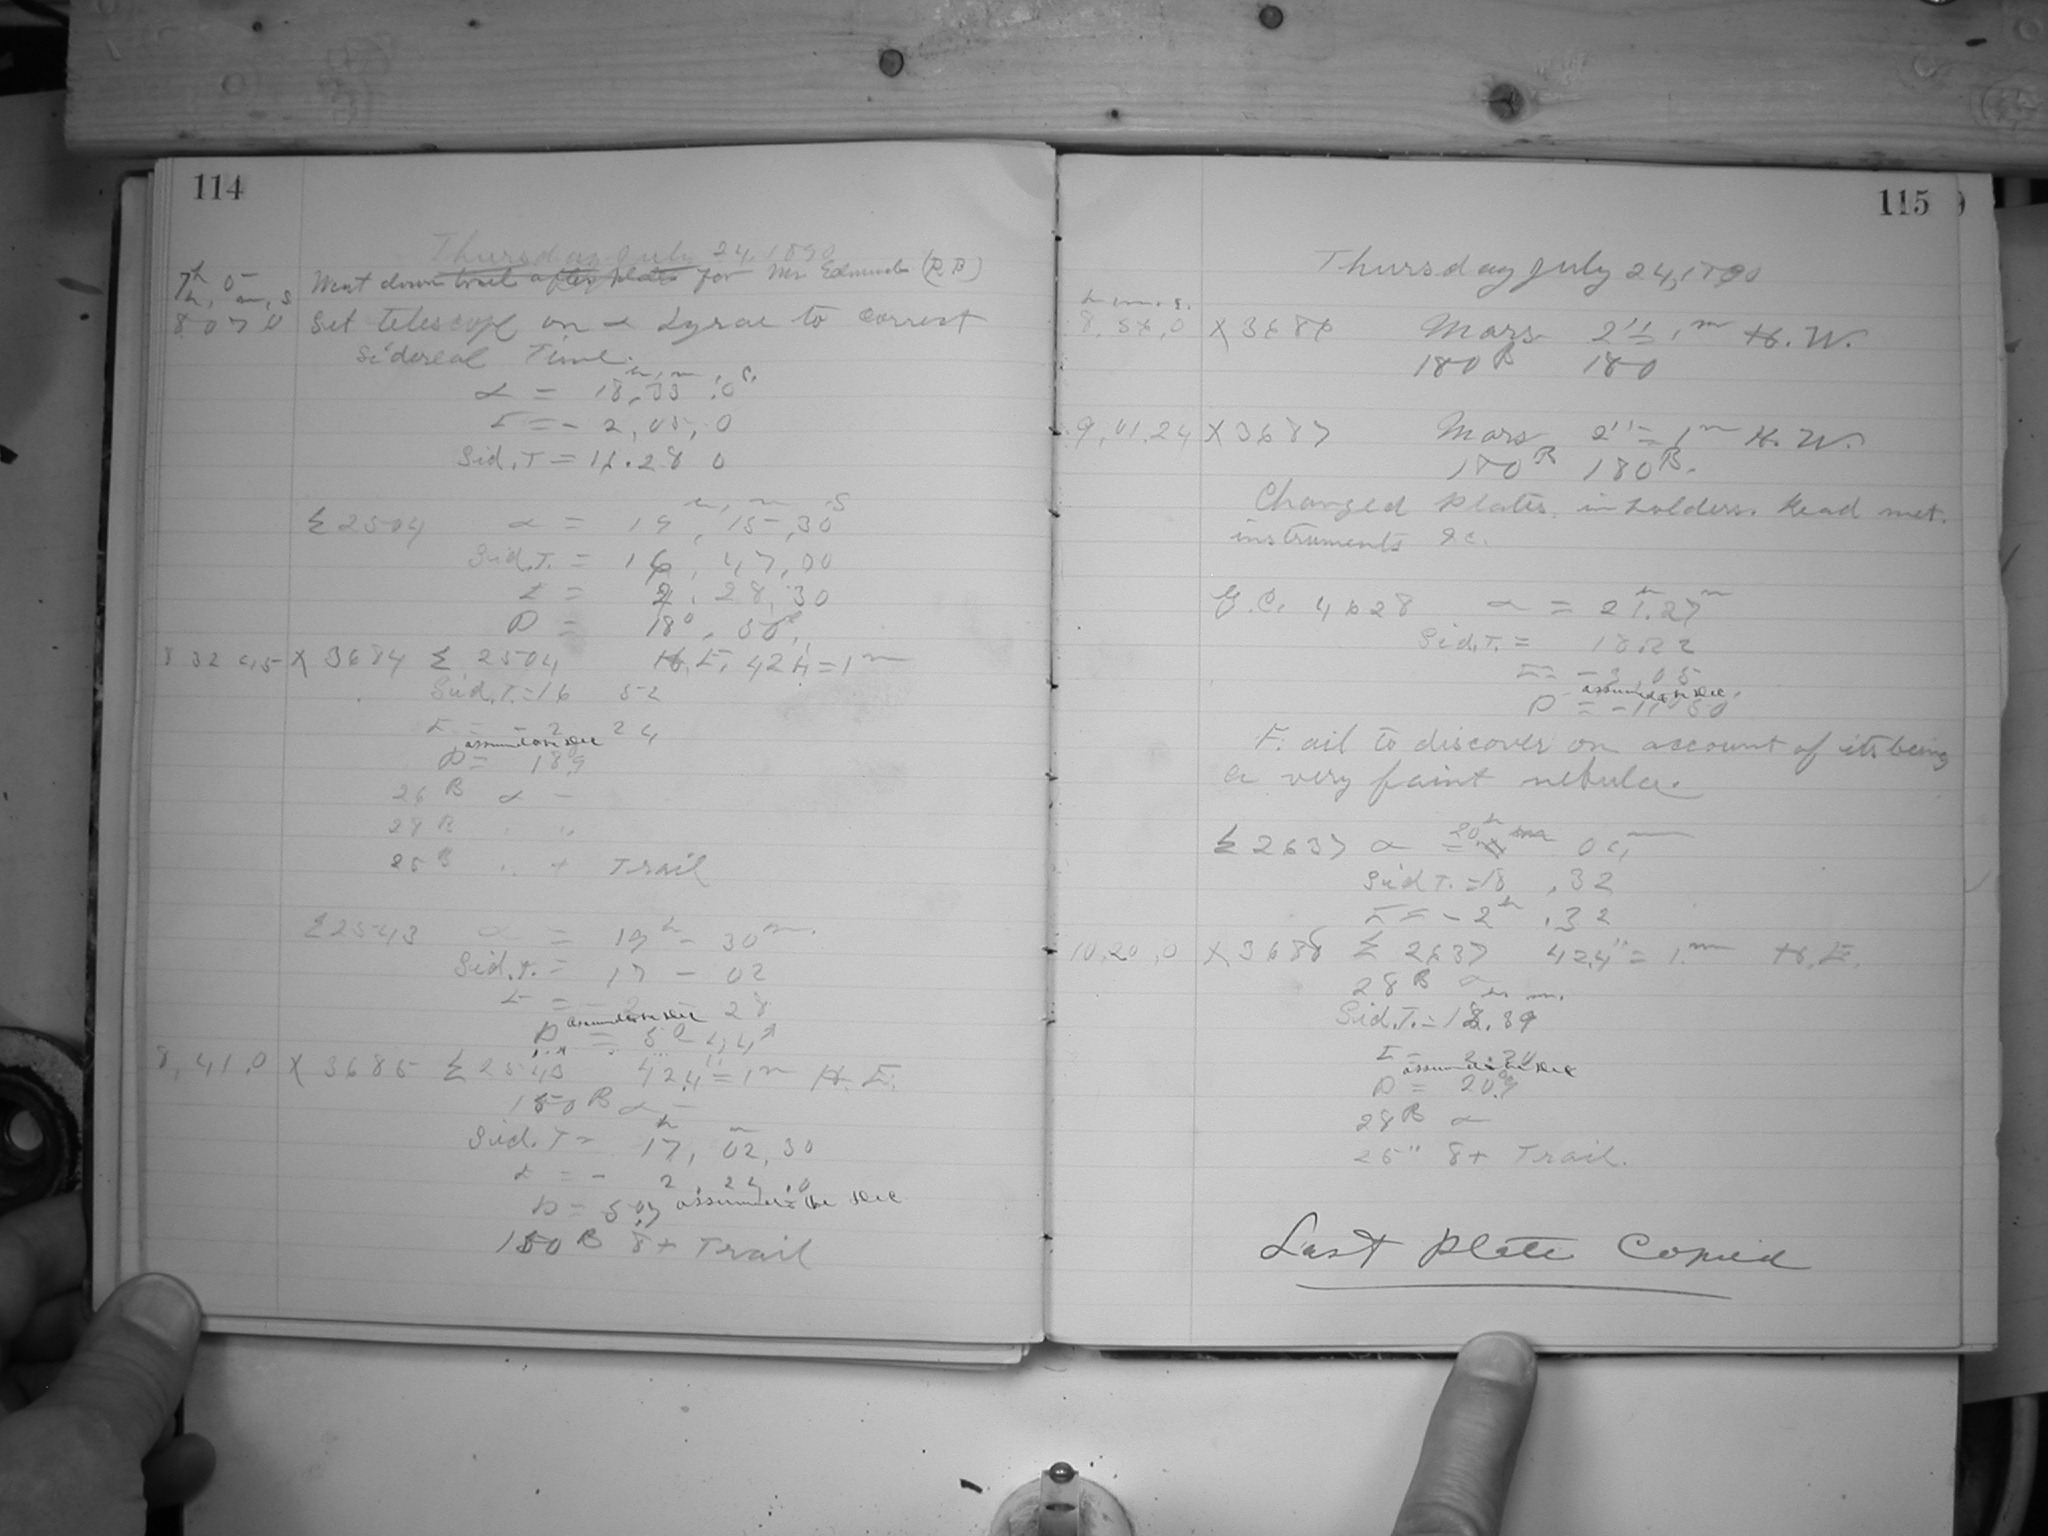 114
Thursday July 24, 1890
7h 0m Went down trail after plates for Mr. Edmunds (R B)
h, m, s
8 0 7 0 Set telescope on α Lyrae to correct
Sidereal Time.
h, m, s.
α = 18, 33, 0
T = - 2, 05, 0
Sid. T = 16. 28 0
Σ 2504 α = 19h, 15m, 30s
Sid. T. = 16, 47, 00
T = 2, 28, 30
D = 18°, 50'
8 32 45 X 3684 Σ 2504 H. E. 424 = 1m
Sid. T. = 16 52
T = - 2 24
assumed to be Dec
D = 18.9
26 B α -
28 B " "
25 B " + Trail
Σ 2543 α = 19h - 30m.
Sid. T. = 17 - 02
T = - 2 - 28
assumed to be Dec
D =
8, 41, 0 X 3685 Σ 2543 42.4" = 1m H. E.
150 B α -
Sid. T = 17h, 02m, 30
T = - 2, 27, 0
D = assumed to be Dec
150 B 8+ Trail
115
Thursday July 24, 1890
h m. s.
8, 56, 0 X 3686 Mars 2" = 1m H. W.
180 B 180
9, 01, 24 X 3687 Mars 2" = 1m H. W.
180 B 180 B.
Changed plates in holders. Read met.
instruments &c.
G. C. 4628 α = 21h. 27m
Sid. T. = 18.22
T = - 3, 05
assumed to be Dec.
D = - 11° 50'
Fail to discover on account of its being
a very faint nebula.
Σ 2637 α = 20h 04m
Sid T. = 18, 32
T = - 2h, 32
10, 20, 0 X 3688 Σ 2637 42.4" = 1m H. E.
28 B
h m.
Sid. T. = 18. 39
T -
assumed to be Dec
D = 20.9
28 B α -
25 " 8+ Trail.
Last Plate Copied